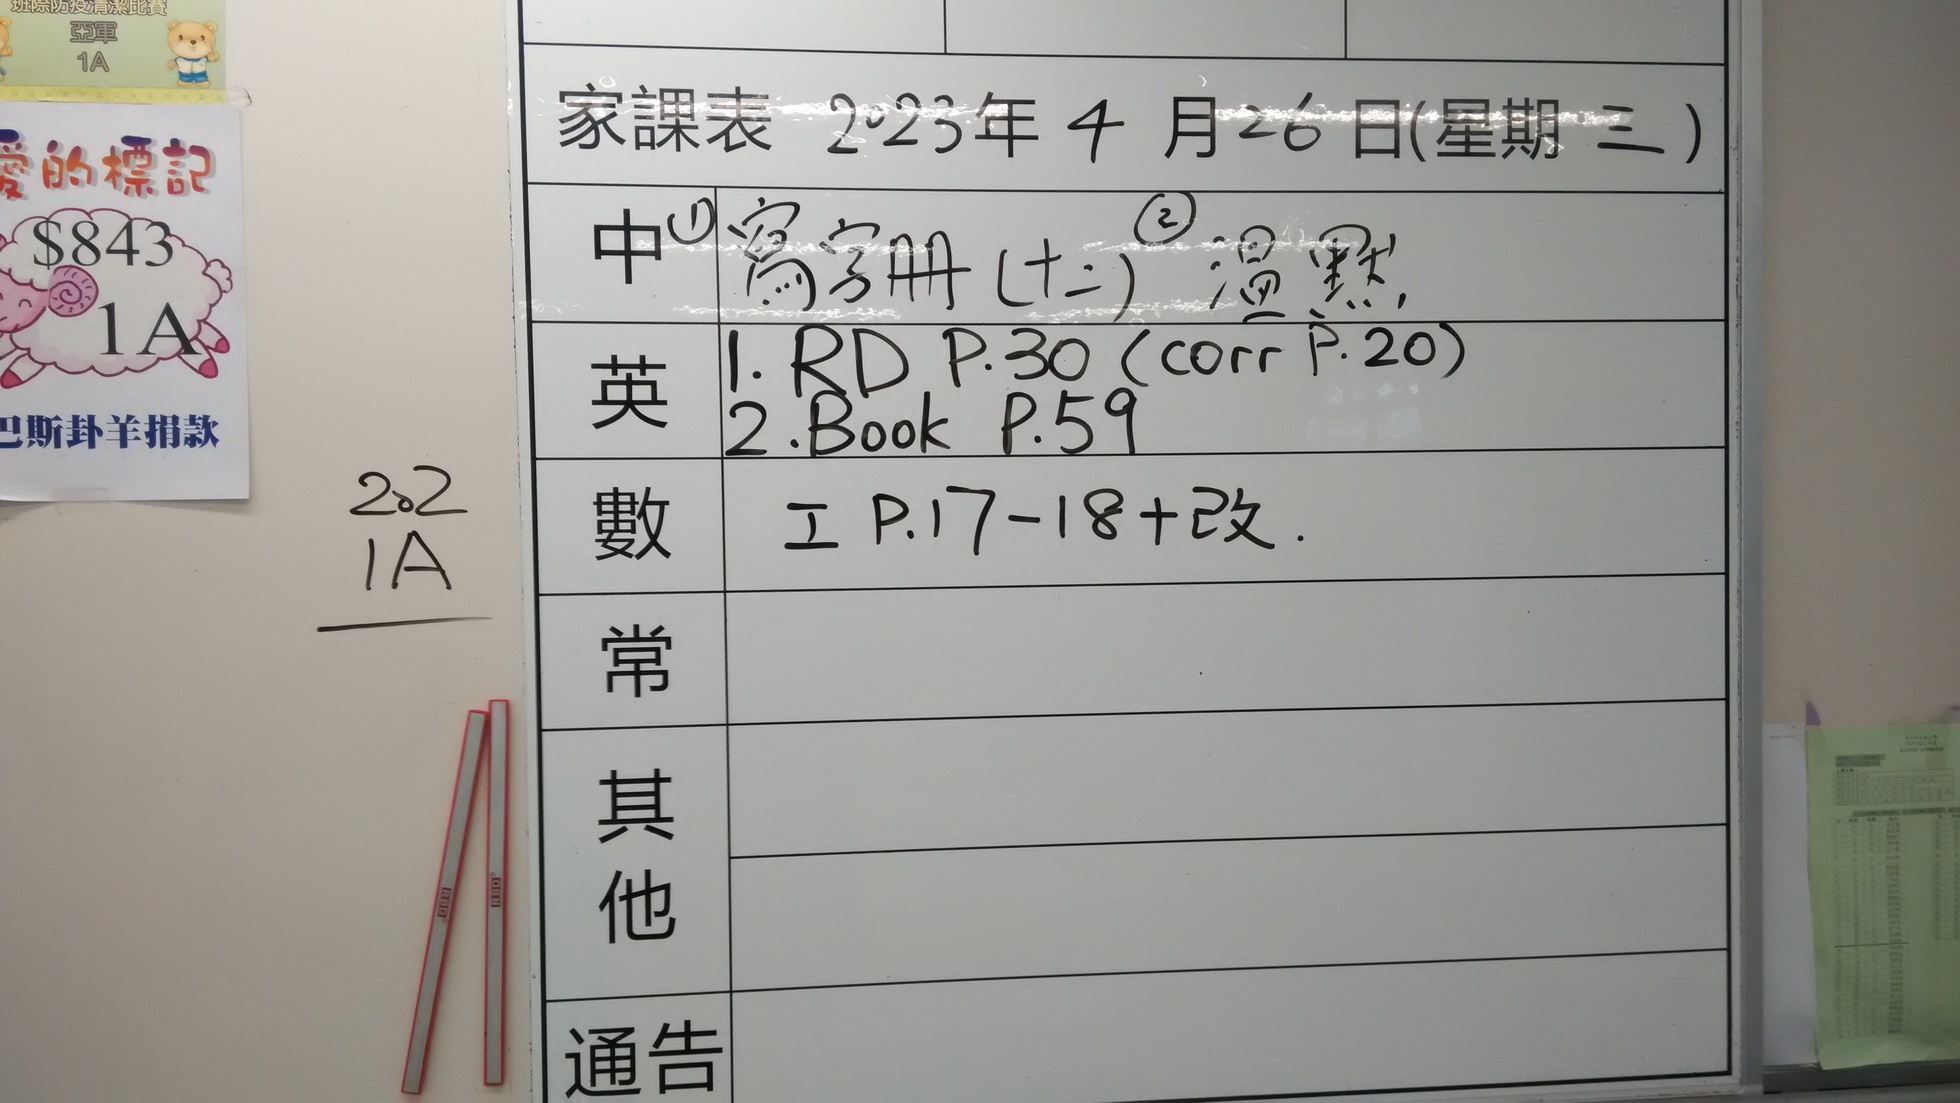 班際防疫清潔比賽
亞軍
1A
愛的標記
$843
1A
巴斯卦羊捐款
202
1A
家課表 2023年 4 月 26 日(星期 三)
中 ① 寫字册 (十二) ② 溫默.
英 1. RD P.30 (corr P.20)
2. Book P.59
數 工 P.17-18+改.
常
其他
通告